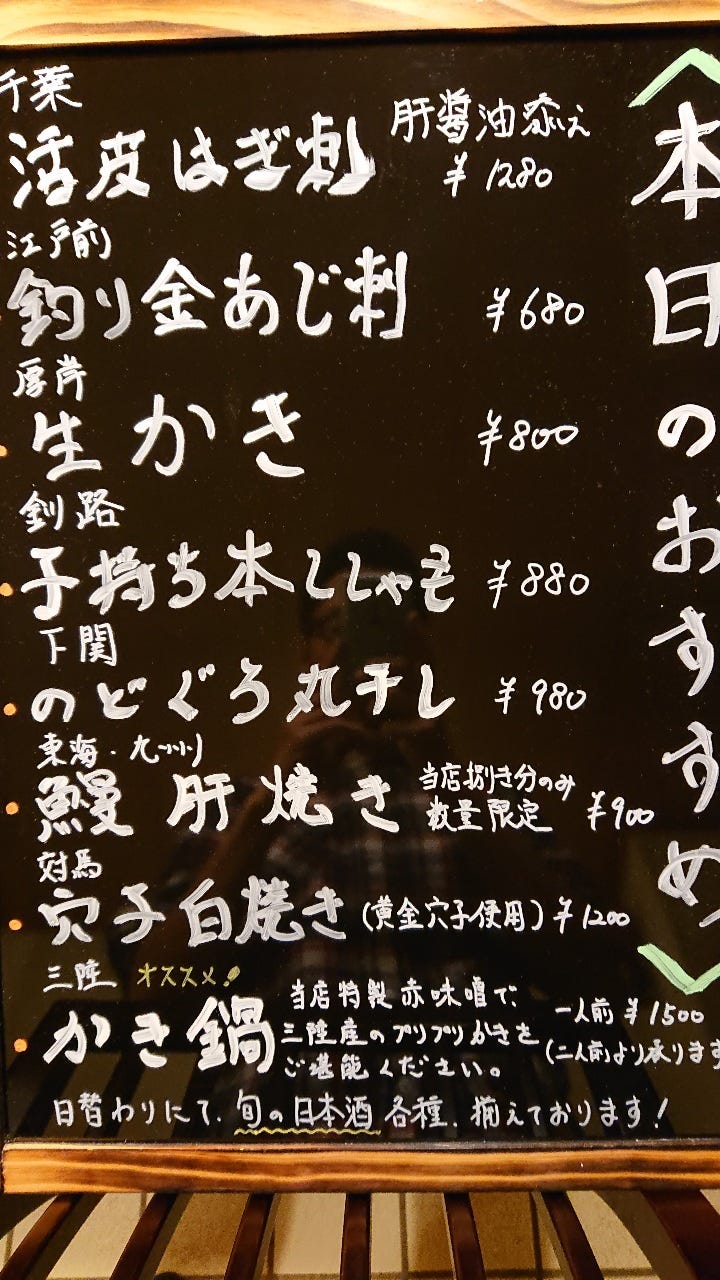 本日のおすすめ
千葉
活皮はぎ刺 肝醤油添え ¥1280
江戸前
釣り金あじ刺 ¥680
厚岸
生かき ¥800
釧路
子持ち本ししゃも ¥880
下関
のどぐろ丸干し ¥980
東海・九州
鰻肝焼き 当店捌き分のみ
数量限定 ¥900
対馬
穴子白焼き (黄金穴子使用) ¥1200
三陸 オススメ!
かき鍋 当店特製赤味噌で、
三陸産のプリプリかきを
ご堪能ください。
一人前 ¥1500
(二人前より承ります
日替わりにて、旬の日本酒各種、揃えております!